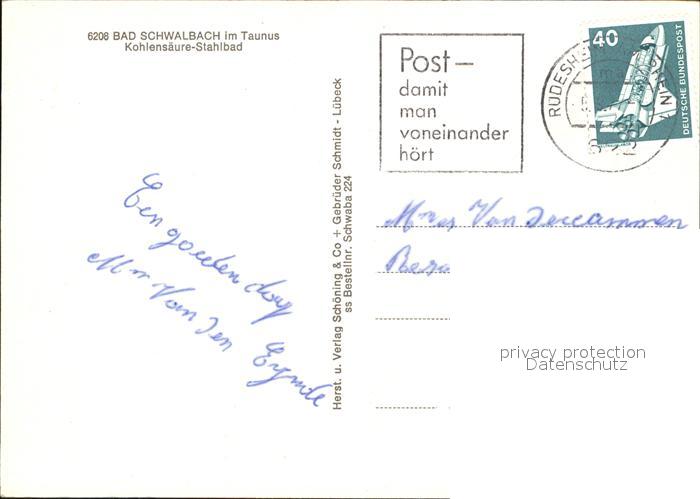 6208 BAD SCHWALBACH im Taunus
Kohlensäure-Stahlbad
Een goeden dag
Mr Van den Eynde
Herst. u. Verlag Schöning & Co + Gebrüder Schmidt - Lübeck
ss Bestellnr. Schwaba 224
Post –
damit
man
voneinander
hört
RÜDESHEIM
40
DEUTSCHE BUNDESPOST
Van
privacy protection
Datenschutz